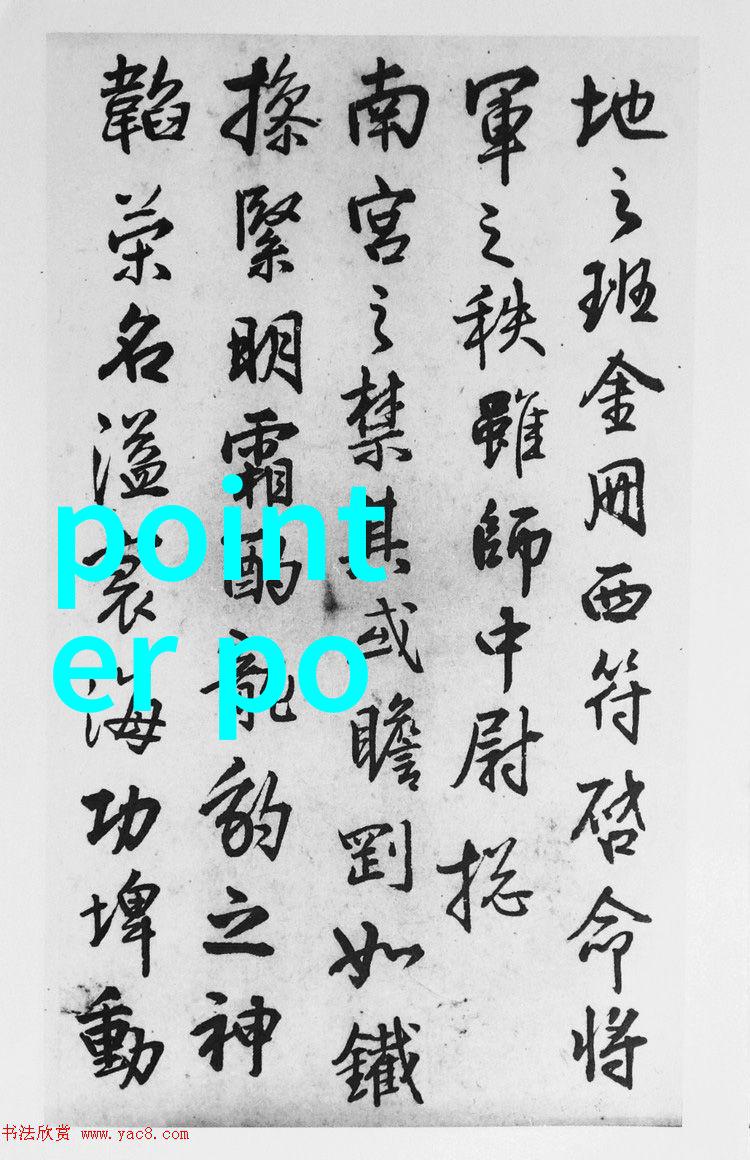 地之班金冊西符啓命将
軍之秩雖師中尉揔
南宮之禁其或瞻剛如鐵
操緊明霜酌龍豹之神
韜榮名溢寰海功埤動
point
er po
书法欣赏 www.yac8.com